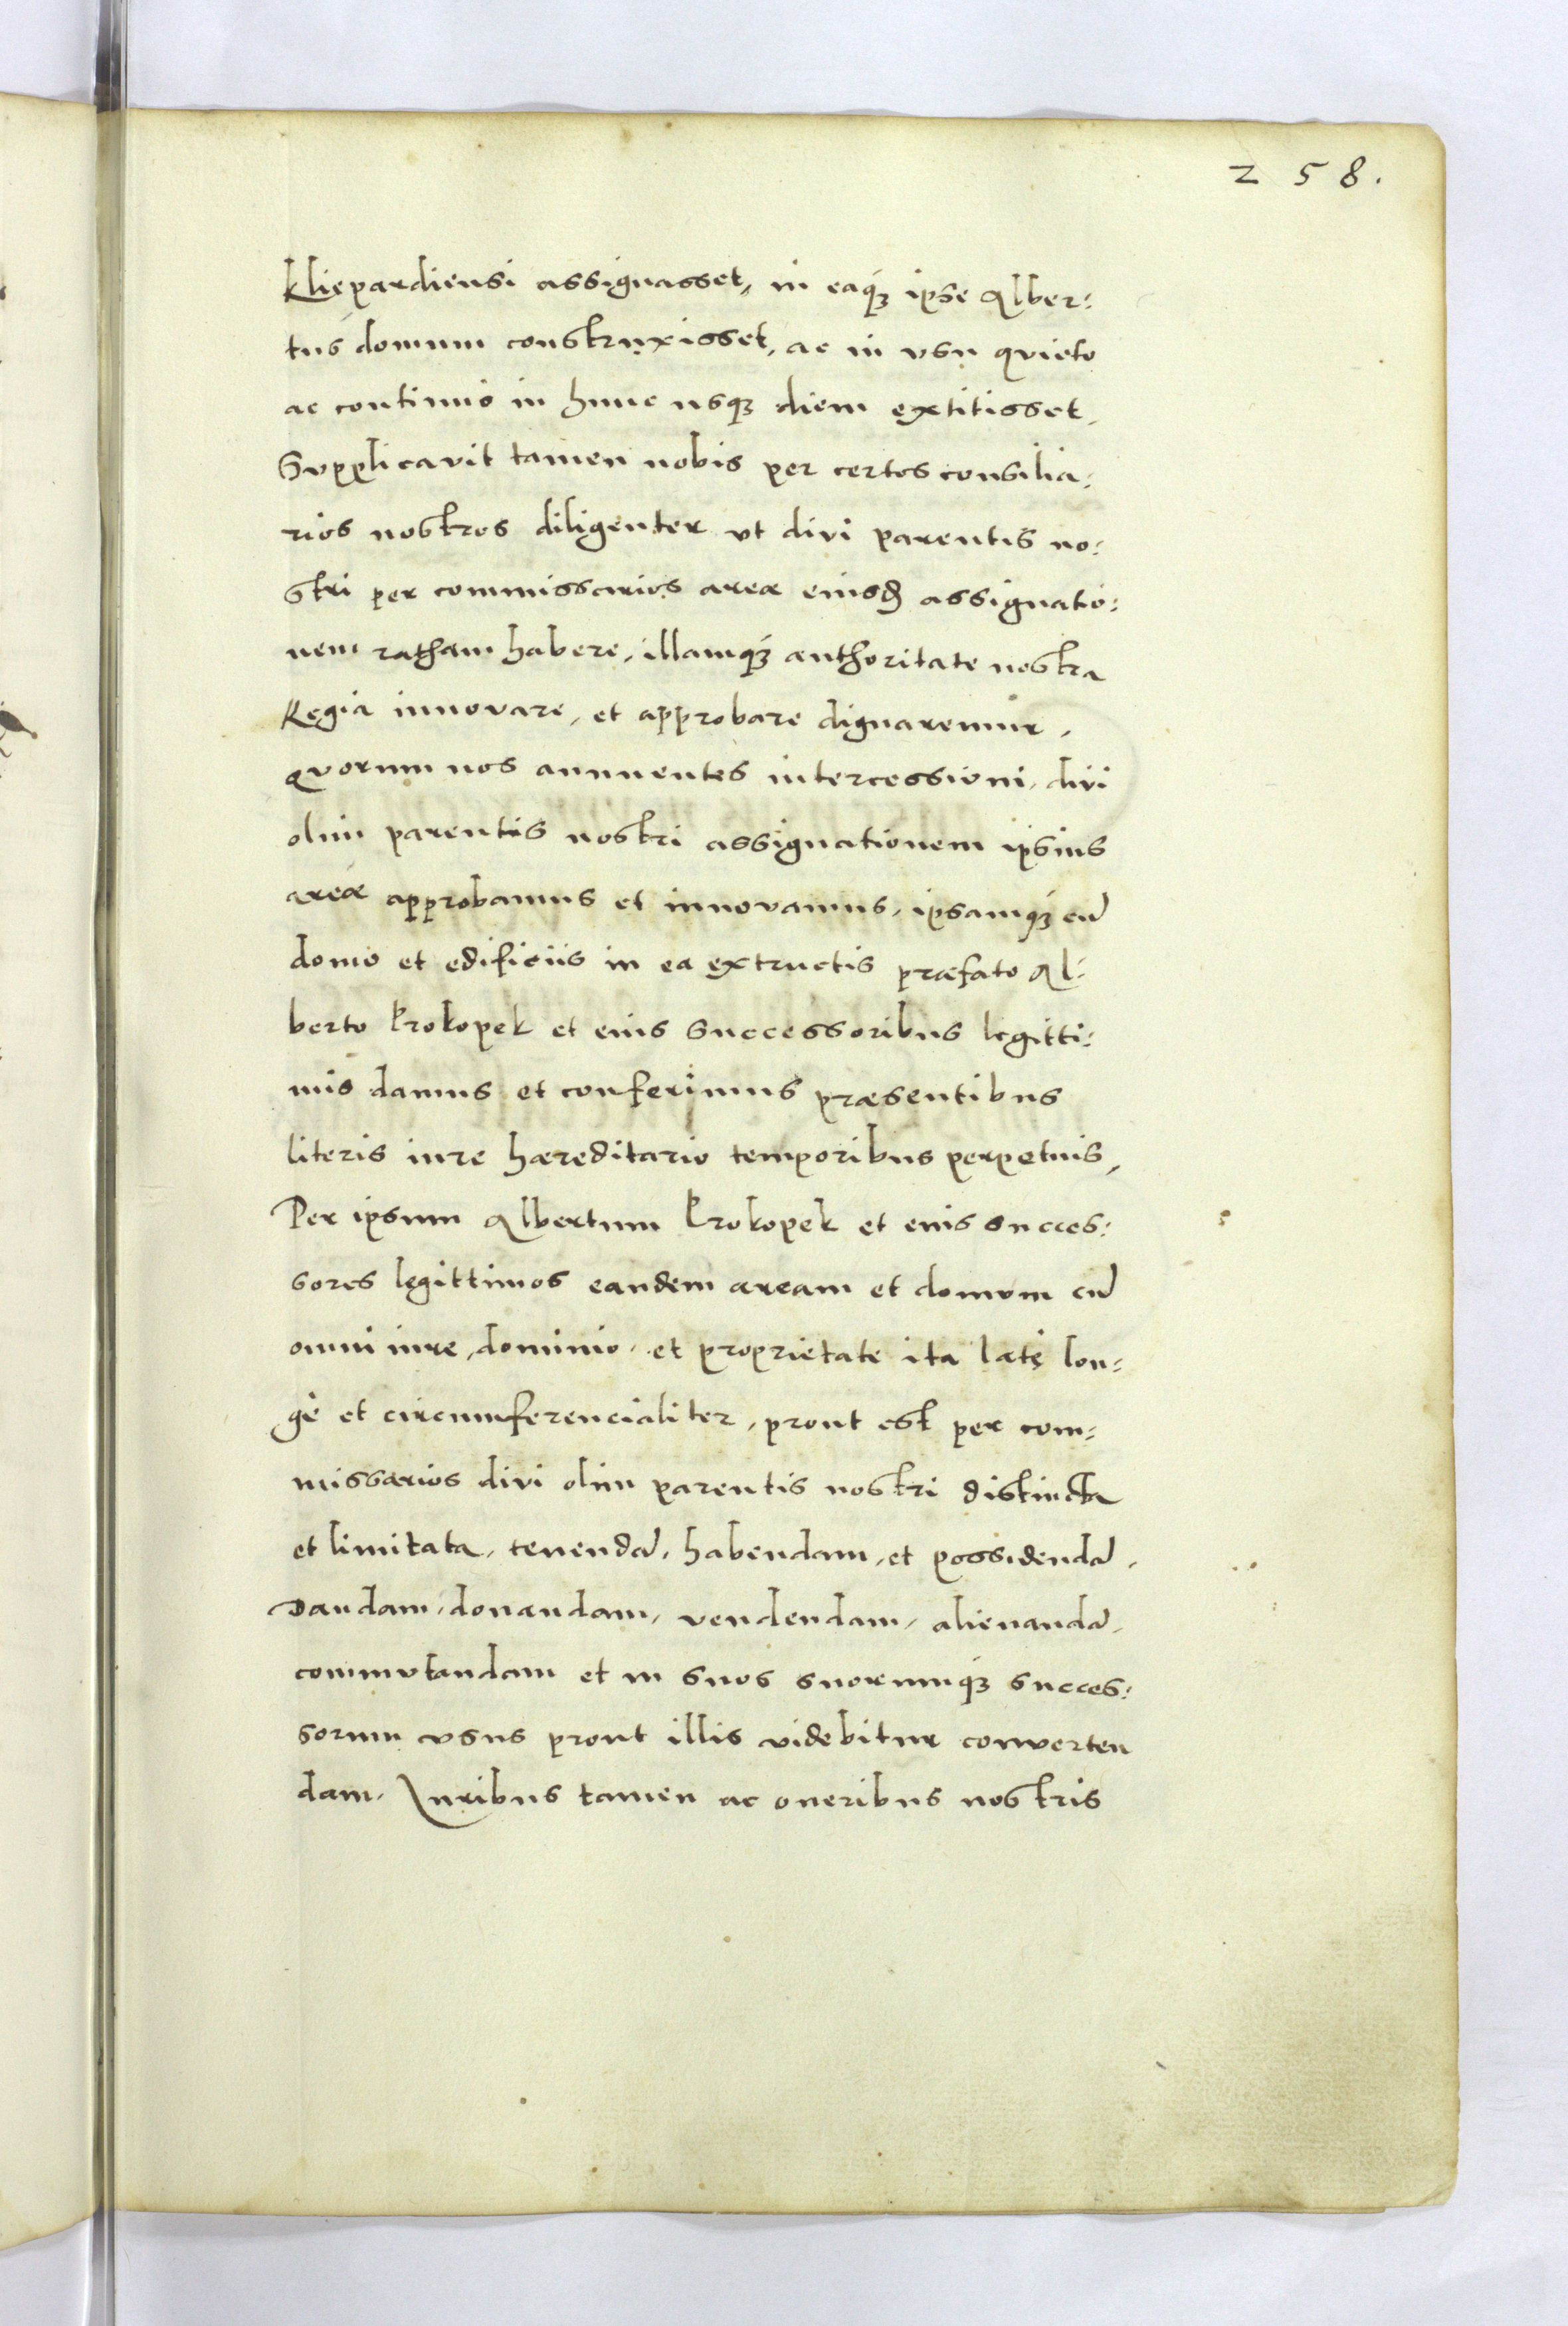 258.
kliepardiensi assignasset, in eaqꝫ ipse Alber:
tus domum construxisset, ac in vsu quieto
ac continuo in hunc usqꝫ diem extitisset.
Supplicavit tamen nobis per certos consilia:
rios nostros diligenter vt divi parentis no:
stri per commissarios areæ eiusd assignatio:
nem ratham habere, illamqꝫ authoritate nostra
Regia innovare, et approbare dignaremur,
quorum nos annuentes intercessioni, divi
olim parentis nostri assignationem ipsius
areæ approbamus et innovamus, ipsamqꝫ cū
domo et edificiis in ea extructis præfato Al:
berto krokopek et eius successoribus legitti:
mis damus et conferimus præsentibus
literis iure hæreditario temporibus perpetuis,
Per ipsum Albertum krokopek et eius succes:
sores legittimos eandem aream et domum cū
omni iure, dominio, et proprietate ita latę lon:
gè et circumferencialiter, prout est per com:
missarios divi olim parentis nostri distincta
et limitata, tenendā, habendam, et possidendā,
Dandam, donandam, vendendam, alienandā,
commutandam et in suos suorumqꝫ succes:
sorum vsus prout illis videbitur converten
dam, Iuribus tamen ac oneribus nostris